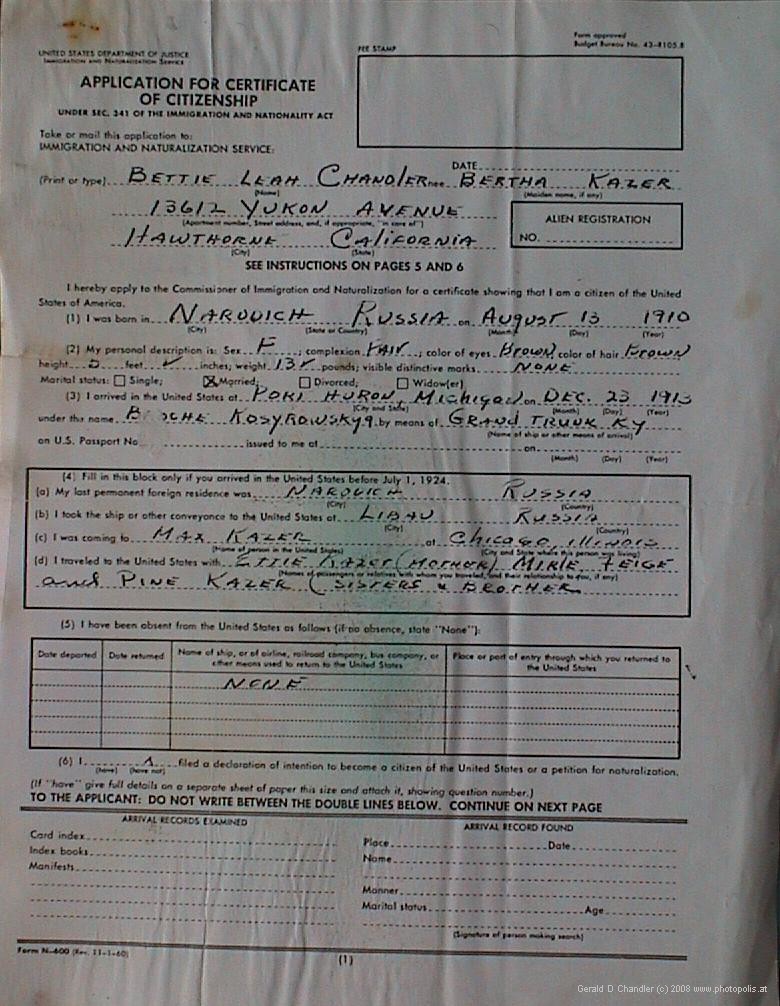 Form approved
Budget Bureau No. 43-R105.8
UNITED STATES DEPARTMENT OF JUSTICE
IMMIGRATION AND NATURALIZATION SERVICE
FEE STAMP
APPLICATION FOR CERTIFICATE
OF CITIZENSHIP
UNDER SEC. 341 OF THE IMMIGRATION AND NATIONALITY ACT
Take or mail this application to:
IMMIGRATION AND NATURALIZATION SERVICE:
DATE
(Print or type) BETTIE LEAH CHANDLER nee BERTHA KAZER
(Name) (Maiden name, if any)
13612 YUKON AVENUE
(Apartment number, Street address, and, if appropriate, "in care of")
ALIEN REGISTRATION
HAWTHORNE CALIFORNIA
NO.
(City) (State)
SEE INSTRUCTIONS ON PAGES 5 AND 6
I hereby apply to the Commissioner of Immigration and Naturalization for a certificate showing that I am a citizen of the United
States of America.
(1) I was born in NAROVICH RUSSIA on AUGUST 13 1910
(City) (State or Country) (Month) (Day) (Year)
(2) My personal description is: Sex F; complexion FAIR; color of eyes BROWN color of hair BROWN
height 5 feet inches; weight pounds; visible distinctive marks NONE
Marital status: Single; Married; Divorced; Widow(er)
(3) I arrived in the United States at PORT HURON, MICHIGAN on DEC. 23 1913
(City and State) (Month) (Day) (Year)
under the name KOSYROWSKY9 by means of GRAND TRUNK RY
(Name of ship or other means of arrival)
on U.S. Passport No issued to me at on
(Month) (Day) (Year)
(4) Fill in this block only if you arrived in the United States before July 1, 1924.
(a) My last permanent foreign residence was NAROVICH RUSSIA
(City) (Country)
(b) I took the ship or other conveyance to the United States at LIBAU RUSSIA
(City) (Country)
(c) I was coming to MAX KAZER at CHICAGO, ILLINOIS
(Name of person in the United States) (City and State where this person was living)
(d) I traveled to the United States with ETTIE KAZER (MOTHER) MIRLE FEIGE
(Names of passengers or relatives with whom you traveled, and their relationship to you, if any)
and PINE KAZER (SISTERS & BROTHER
(5) I have been absent from the United States as follows (if no absence, state "None"):
Date departed Date returned Name of ship, or of airline, railroad company, bus company, or other means used to return to the United States Place or port of entry through which you returned to the United States
NONE
(6) I filed a declaration of intention to become a citizen of the United States or a petition for naturalization.
(have) (have not)
(If "have" give full details on a separate sheet of paper this size and attach it, showing question number.)
TO THE APPLICANT: DO NOT WRITE BETWEEN THE DOUBLE LINES BELOW. CONTINUE ON NEXT PAGE
ARRIVAL RECORDS EXAMINED
ARRIVAL RECORD FOUND
Card index
Index books
Manifests
Place Date
Name
Manner
Marital status Age
(Signature of person making search)
Form N-600 (Rev. 11-1-60)
(1)
Gerald D Chandler (c) 2008 www.photopolis.at